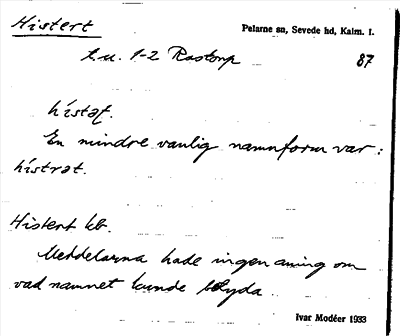 Histert
Pelarne sn, Sevede hd, Kalm. l.
t.u. 1-2 Rostorp
87
hístaṭ.
En mindre vanlig namnform var:
hístrat.
Histert kb.
Meddelarna hade ingen aning om
vad namnet kunde betyda
Ivar Modéer 1933